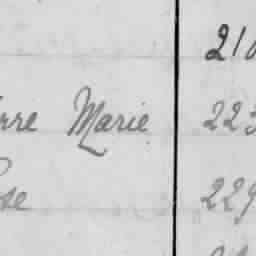 210
rre Marie 223
se 229